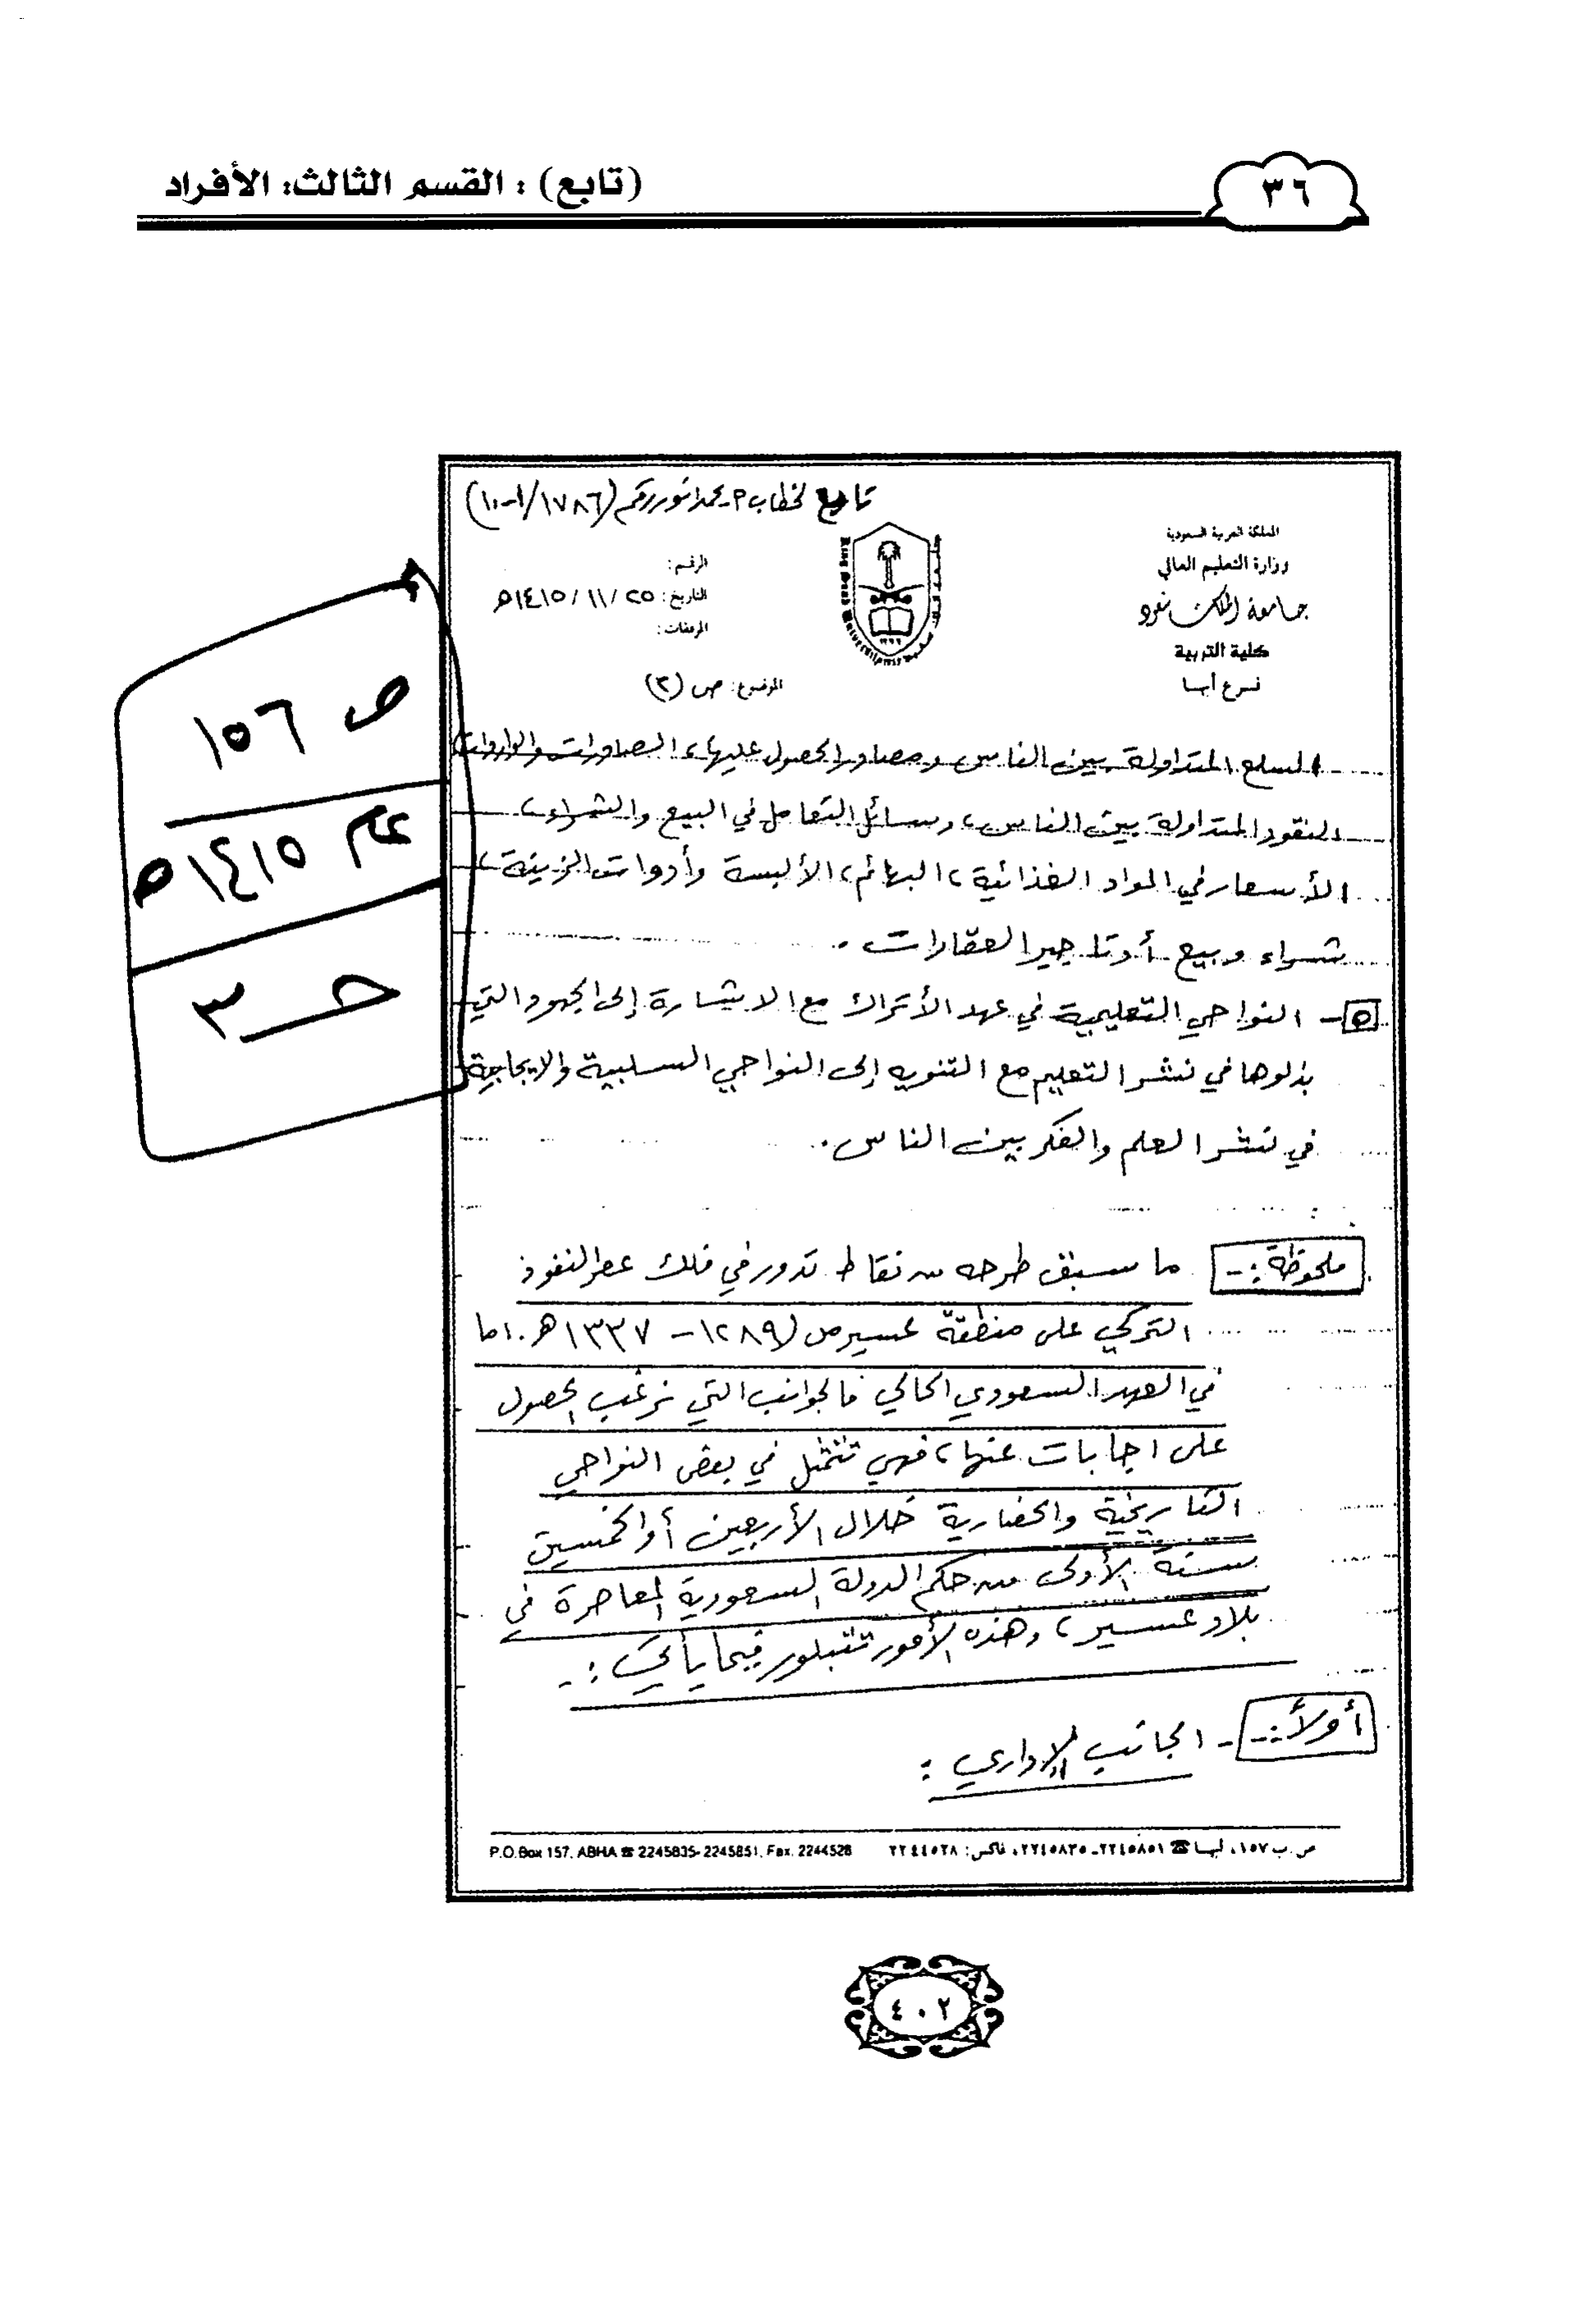 ٣٦
(تابع) : القسم الثالث: الأفراد
تابع لخطاب م. محمد أنور رقم (١٠٠١/١٧٨٦)
المملكة العربية السعودية
وزارة التعليم العالي
جامعة الملك سعود
كلية التربية
فرع أبها
الرقم:
التاريخ: ٢٥/١١/١٤١٥هـ
المرفقات:
الموضوع: ص (٣)
ص ١٥٦
عام ١٤١٥هـ
حـ ٣
السلع المتداولة بين الناس ومصادر الحصول عليها، الصادرات والواردات
النقود المتداولة بين الناس، وسائل التعامل في البيع والشراء،
الأسعار في المواد الغذائية، البهائم، الألبسة وأدوات الزينة،
شراء وبيع أو تأجير العقارات.
٥- النواحي التعليمية في عهد الأتراك مع الاشارة إلى الجهود التي
بذلوها في نشر التعليم مع التنويه إلى النواحي السلبية والايجابية
في نشر العلم والفكر بين الناس.
ملحوظة:- ما سبق طرحه من نقاط تدور في فلك عصر النفوذ
التركي على منطقة عسير من (١٢٨٩ - ١٣٣٧هـ. اما
في العهد السعودي الحالي فالجوانب التي نرغب الحصول
على اجابات عنها، فهي تتمثل في بعض النواحي
التاريخية والحضارية خلال الأربعين أو الخمسين
سنة الأولى من حكم الدولة السعودية المعاصرة في
بلاد عسير، وهذه الأمور تتبلور فيما يأتي:-
أولاً:- الجانب الإداري:
ص.ب ١٥٧، أبها ☎ ٢٢٤٥٨٥١-٢٢٤٥٨٣٥، فاكس: ٢٢٤٤٥٢٨
P.O.Box 157, ABHA ☎ 2245835-2245851, Fax. 2244528
٤٠٢